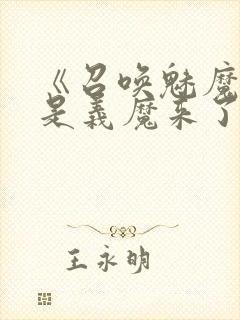 《召唤魅魔
是义魔来了
王永明